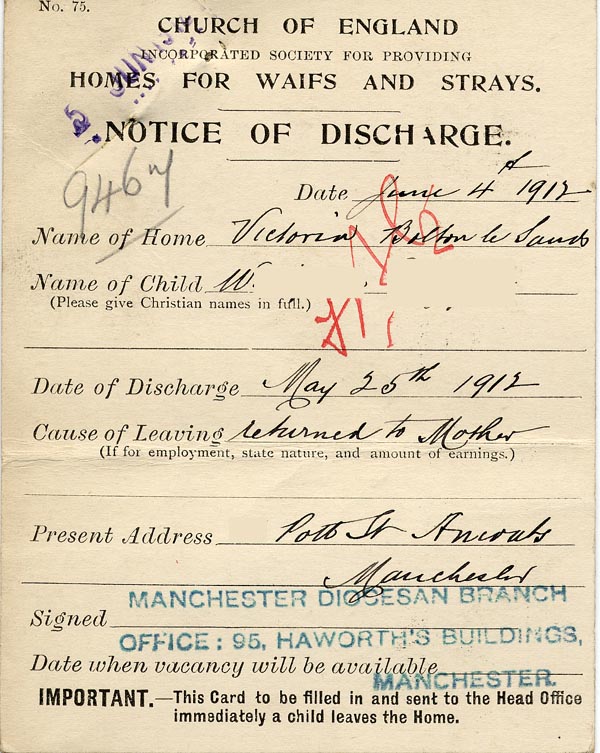 No. 75.
CHURCH OF ENGLAND
INCORPORATED SOCIETY FOR PROVIDING
HOMES FOR WAIFS AND STRAYS.
NOTICE OF DISCHARGE.
9467
Date June 4th 1912
Name of Home Victoria Bolton le Sands
Name of Child W.
(Please give Christian names in full.)
Date of Discharge May 25th 1912
Cause of Leaving returned to Mother
(If for employment, state nature, and amount of earnings.)
Present Address Pott St Ancoats
Manchester
MANCHESTER DIOCESAN BRANCH
Signed
OFFICE: 95, HAWORTH'S BUILDINGS,
Date when vacancy will be available
MANCHESTER.
IMPORTANT.—This Card to be filled in and sent to the Head Office
immediately a child leaves the Home.